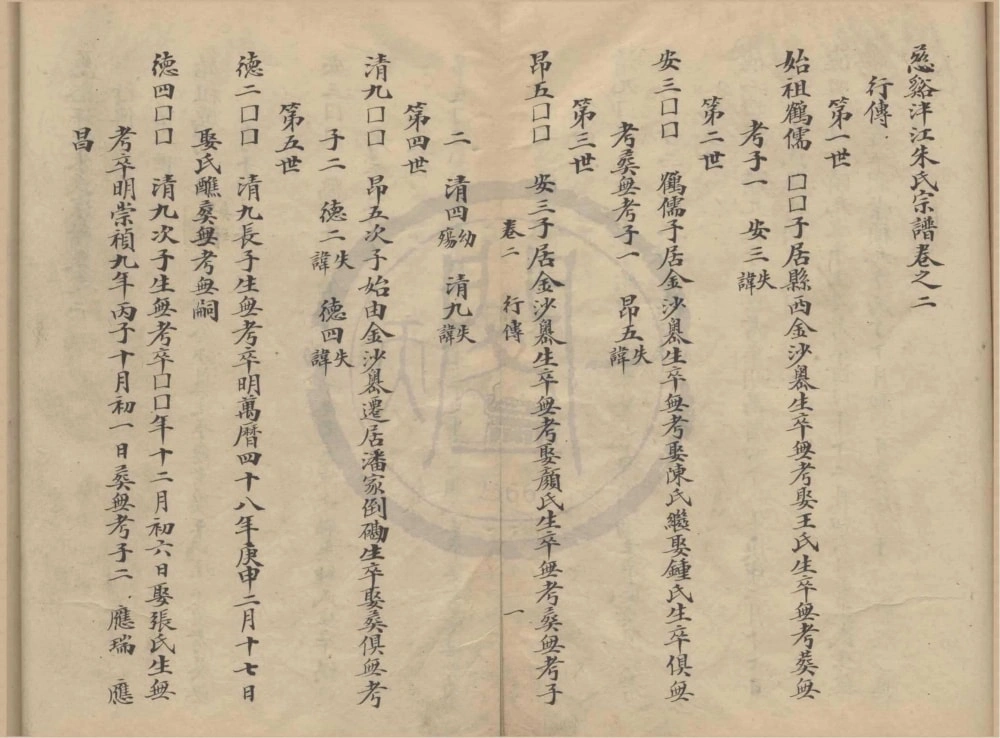 慈谿洋江朱氏宗譜卷之二
行傳
第一世
始祖鶴儒 囗囗子居縣西金沙嶴生卒無考娶王氏生卒無考葬無
考子一 安三失諱
第二世
安三囗囗 鶴儒子居金沙嶴生卒無考娶陳氏繼娶鍾氏生卒俱無
考葬無考子一 昂五失諱
第三世
昂五囗囗 安三子居金沙嶴生卒無考娶顏氏生卒無考葬無考子
卷二 行傳 一
二 清四幼殤 清九失諱
第四世
清九囗囗 昂五次子始由金沙嶴遷居潘家倒磡生卒娶葬俱無考
子二 德二失諱 德四失諱
第五世
德二囗囗 清九長子生無考卒明萬曆四十八年庚申二月十七日
娶氏醮葬無考無嗣
德四囗囗 清九次子生無考卒囗囗年十二月初六日娶張氏生無
考卒明崇禎九年丙子十月初一日葬無考子二 應瑞 應
昌